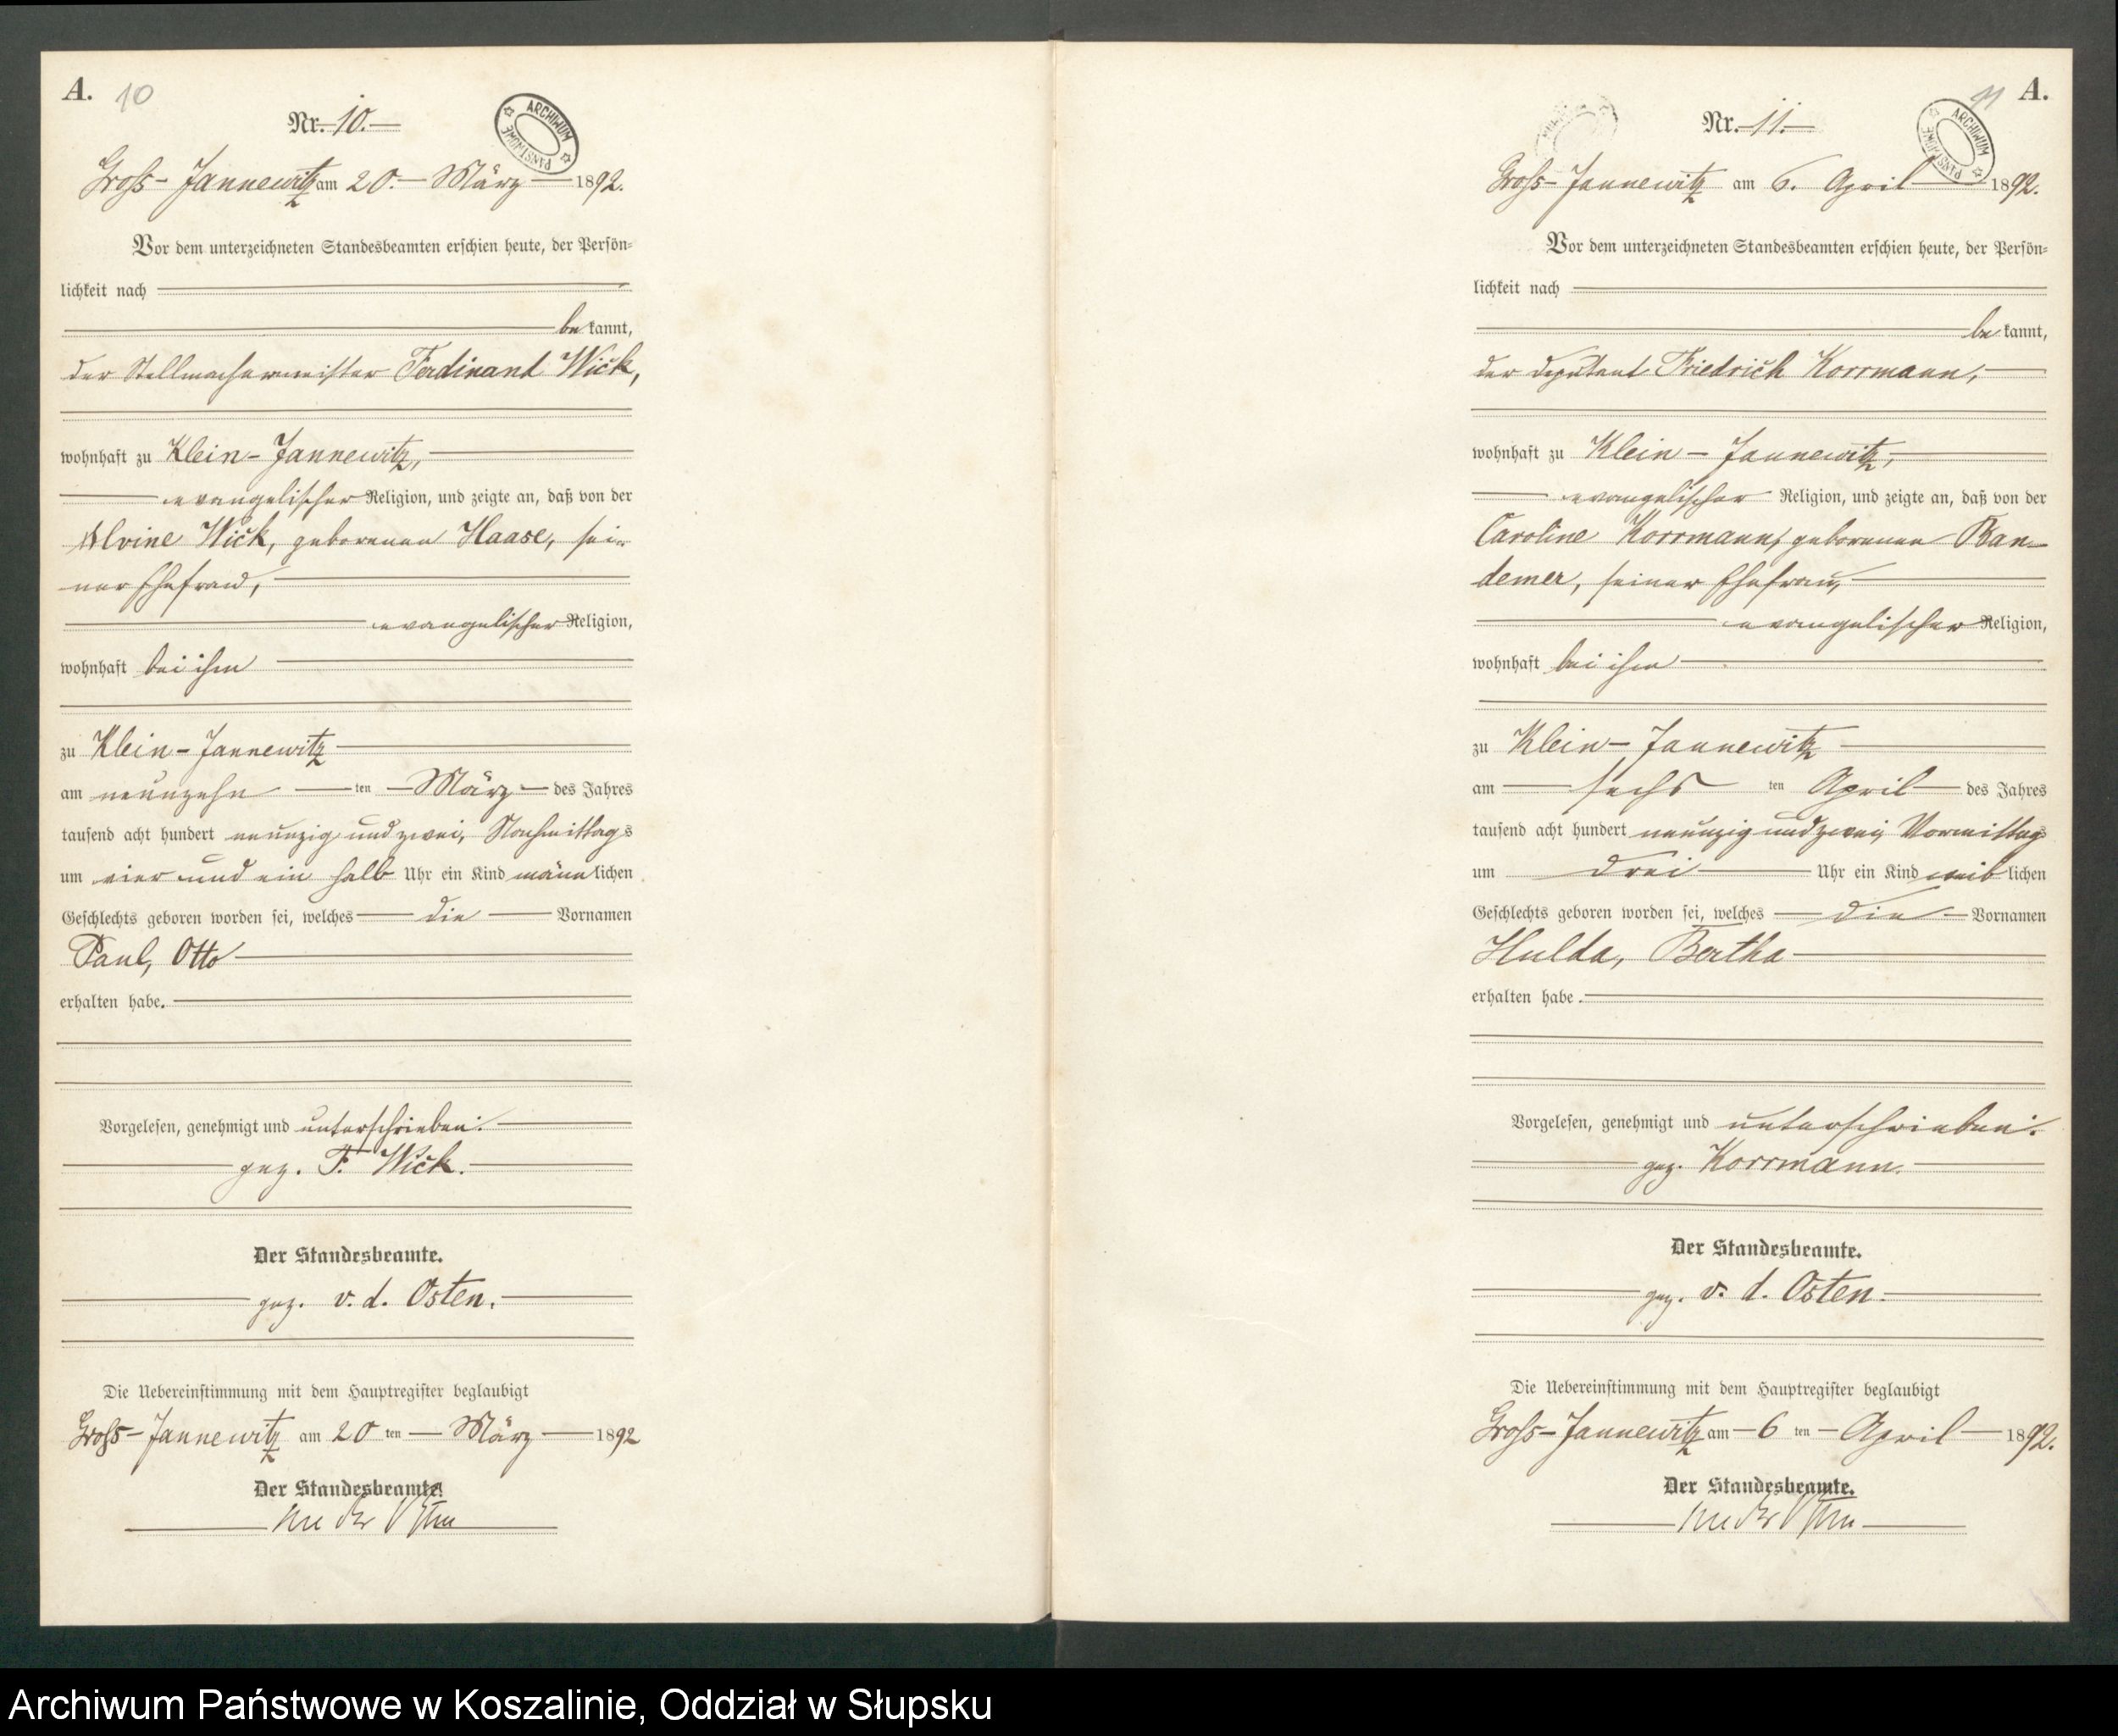 A. 10
Nr. 10.
ARCHIWUM PAŃSTWOWE
Gross-Jannewitz am 20. März 1892.
Vor dem unterzeichneten Standesbeamten erschien heute, der Persön-
lichkeit nach
be kannt,
der Stellmachermeister Ferdinand Wick,
wohnhaft zu Klein-Jannewitz,
evangelischer Religion, und zeigte an, daß von der
Alvine Wick, geborenen Haase, sei-
ner Ehefrau,
evangelischer Religion,
wohnhaft bei ihm
zu Klein-Jannewitz
am neunzehn ten März des Jahres
tausend acht hundert neunzig und zwei, Nachmittags
um vier und ein halb Uhr ein Kind männ lichen
Geschlechts geboren worden sei, welches die Vornamen
Paul, Otto
erhalten habe.
Vorgelesen, genehmigt und unterschrieben:
gez. F. Wick.
Der Standesbeamte.
gez. v. d. Osten.
Die Uebereinstimmung mit dem Hauptregister beglaubigt
Gross-Jannewitz am 20 ten März 1892
Der Standesbeamte.
von der Osten
11 A.
Nr. 11.
ARCHIWUM PAŃSTWOWE
Gross-Jannewitz am 6. April 1892.
Vor dem unterzeichneten Standesbeamten erschien heute, der Persön-
lichkeit nach
be kannt,
der Deputant Friedrich Korrmann,
wohnhaft zu Klein-Jannewitz,
evangelischer Religion, und zeigte an, daß von der
Caroline Korrmann, geborenen Ban-
demer, seiner Ehefrau,
evangelischer Religion,
wohnhaft bei ihm
zu Klein-Jannewitz
am sechs ten April des Jahres
tausend acht hundert neunzig und zwei, Vormittags
um drei Uhr ein Kind weib lichen
Geschlechts geboren worden sei, welches die Vornamen
Hulda, Bertha
erhalten habe.
Vorgelesen, genehmigt und unterschrieben:
gez. Korrmann.
Der Standesbeamte.
gez. v. d. Osten.
Die Uebereinstimmung mit dem Hauptregister beglaubigt
Gross-Jannewitz am 6 ten April 1892.
Der Standesbeamte.
von der Osten
Archiwum Państwowe w Koszalinie, Oddział w Słupsku